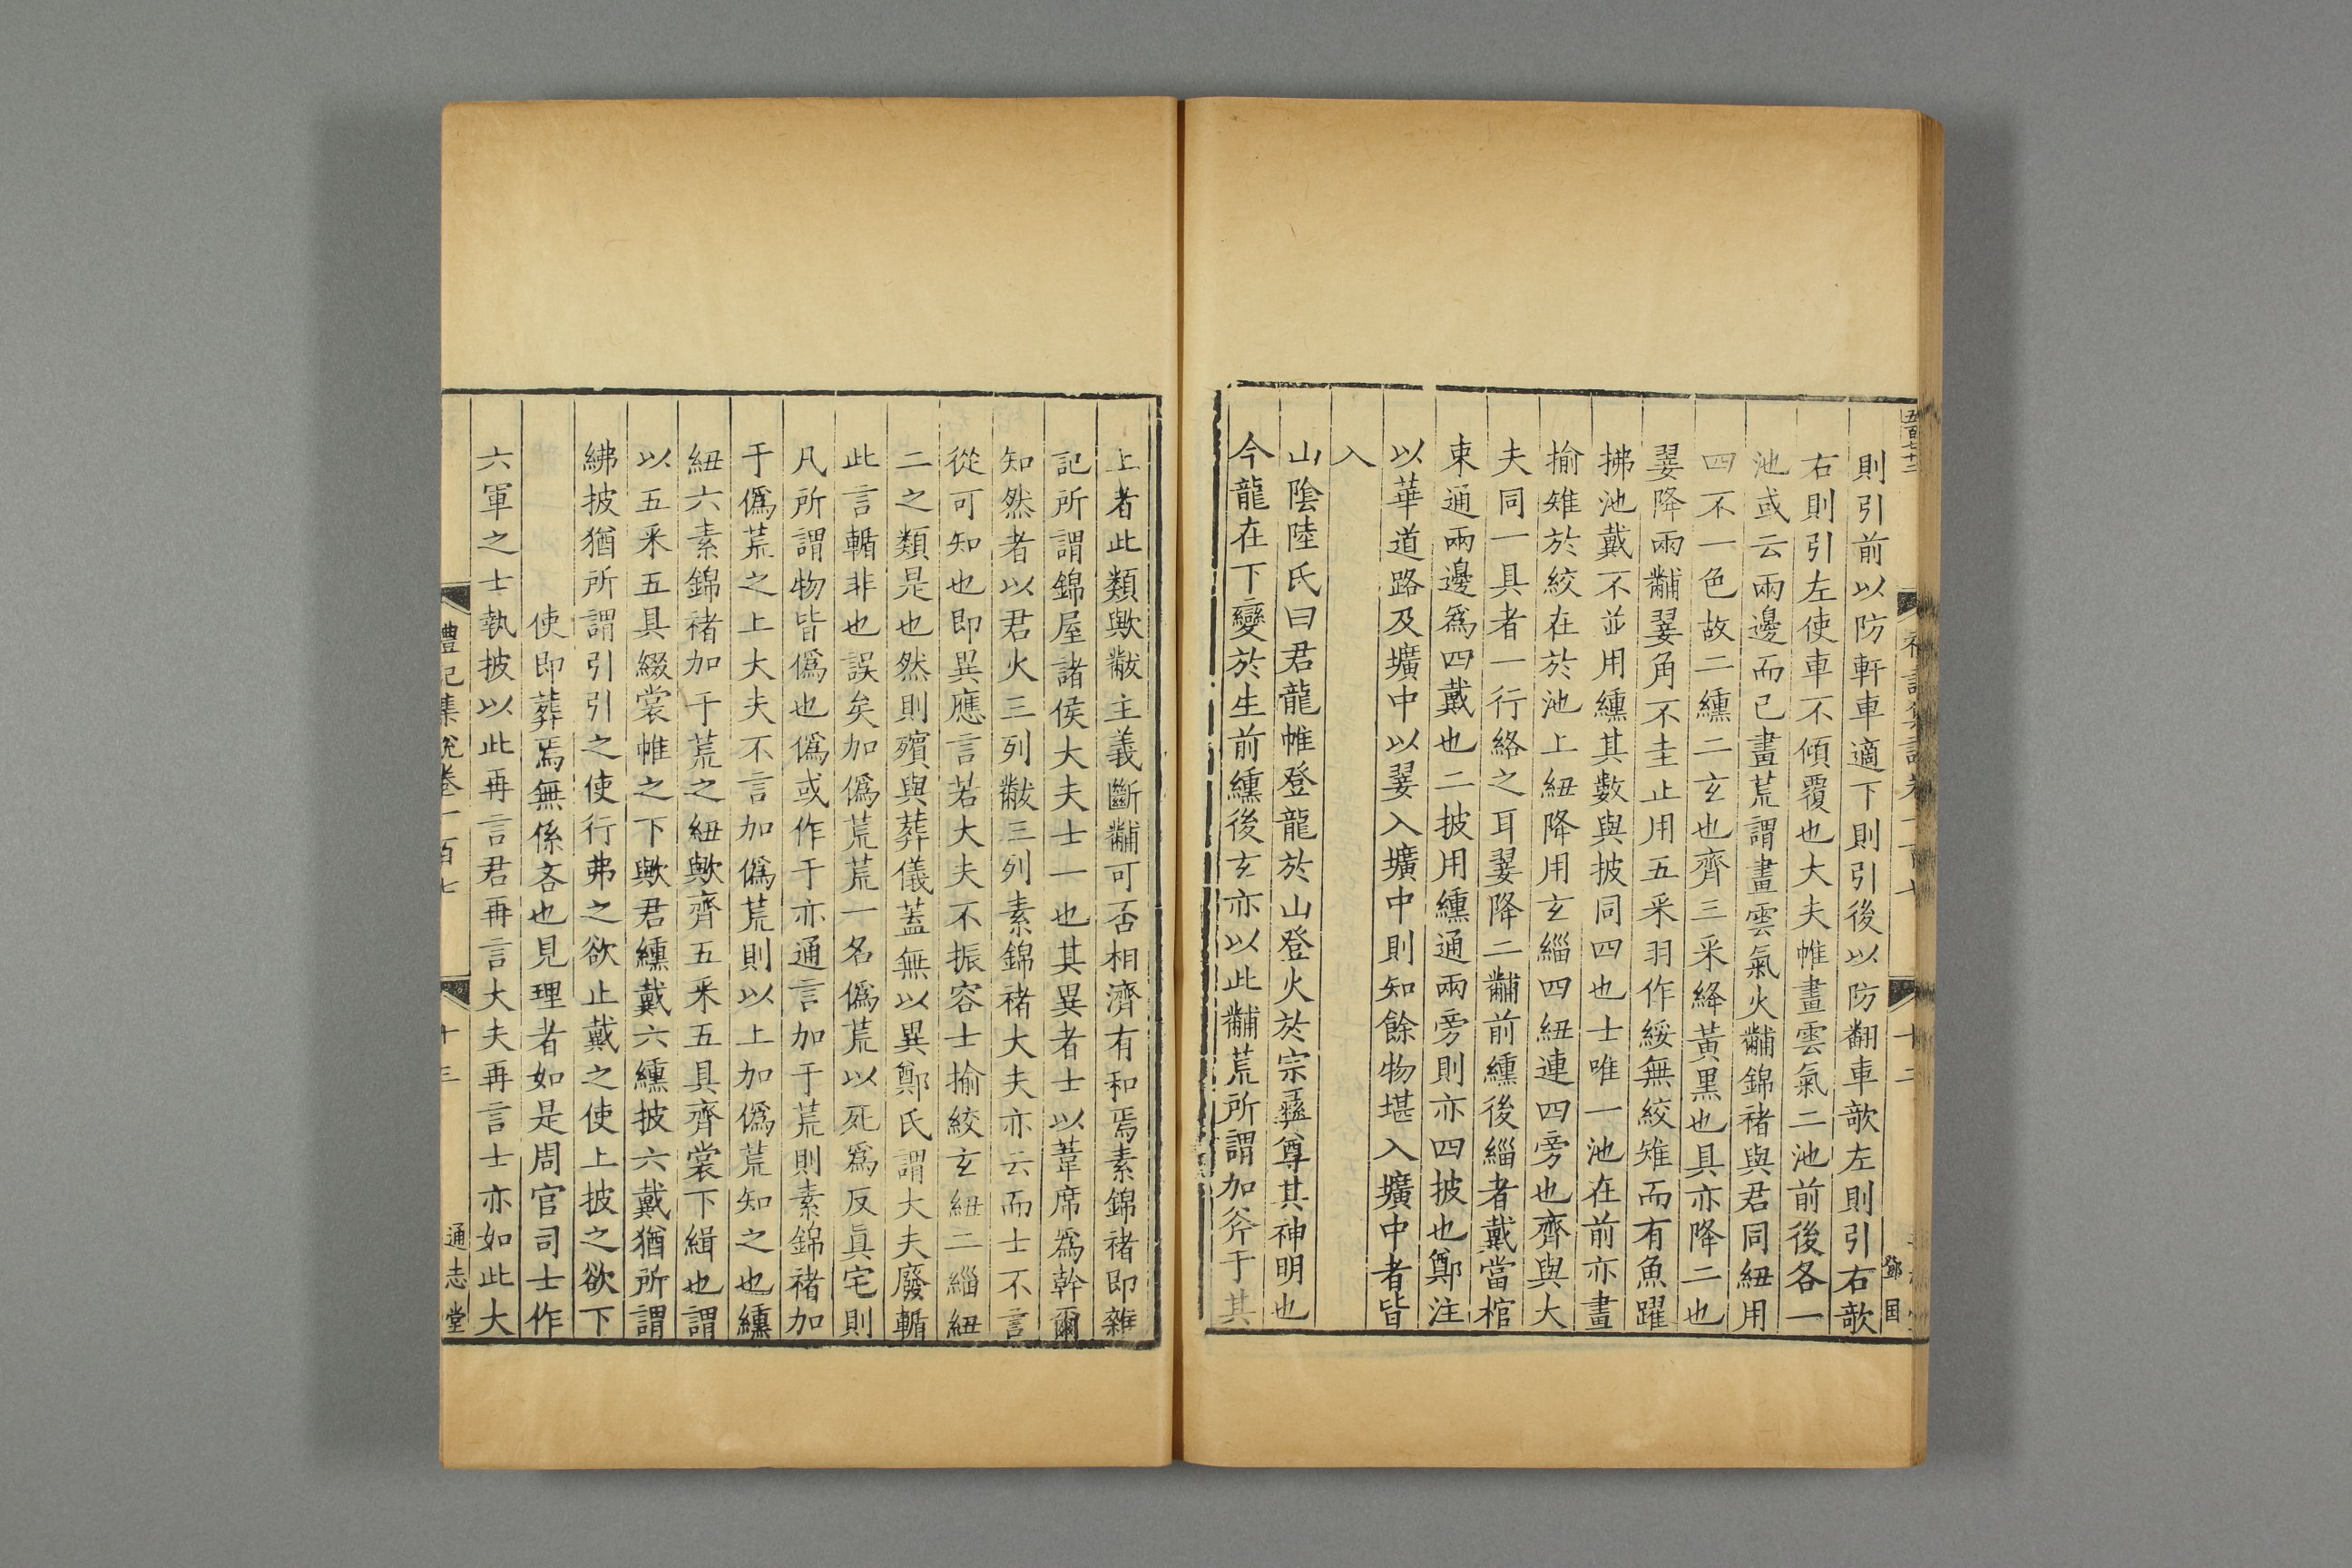 五百七十二
鄧国
則引前以防軒車適下則引後以防翻車歌左則引右歌
右則引左使車不傾覆也大夫帷畫雲氣二池前後各一
池或云兩邊而已畫荒謂畫雲氣火黼錦褚與君同紐用
四不一色故二纁二玄也齊三采絳黃黒也具亦降二也
翣降兩黼翣角不圭止用五采羽作綏無絞雉而有魚躍
拂池戴不並用纁其數與披同四也士唯一池在前亦畫
揄雉於絞在於池上紐降用玄緇四紐連四旁也齊與大
夫同一具者一行絡之耳翣降二黼前纁後緇者戴當棺
束通兩邊爲四戴也二披用纁通兩旁則亦四披也鄭注
以華道路及壙中以翣入壙中則知餘物堪入壙中者皆
入
山隂陸氏曰君龍帷登龍於山登火於宗彞尊其神明也
今龍在下變於生前纁後玄亦以此黼荒所謂加斧于其
上者此類歟黻主義斷黼可否相濟有和焉素錦褚即雜
記所謂錦屋諸侯大夫士一也其異者士以葦席爲幹爾
知然者以君火三列黻三列素錦褚大夫亦云而士不言
從可知也即異應言若大夫不振容士揄絞玄紐二緇紐
二之類是也然則殯與葬儀蓋無以異鄭氏謂大夫廢輴
此言輴非也誤矣加僞荒荒一名僞荒以死爲反眞宅則
凡所謂物皆僞也僞或作于亦通言加于荒則素錦褚加
于僞荒之上大夫不言加僞荒則以上加僞荒知之也纁
紐六素錦褚加于荒之紐歟齊五采五具齊裳下緝也謂
以五采五具綴裳帷之下歟君纁戴六纁披六戴猶所謂
紼披猶所謂引引之使行弗之欲止戴之使上披之欲下
使即葬焉無係吝也見理者如是周官司士作
六軍之士執披以此再言君再言大夫再言士亦如此大
禮記集說卷一百七
十三
通志堂